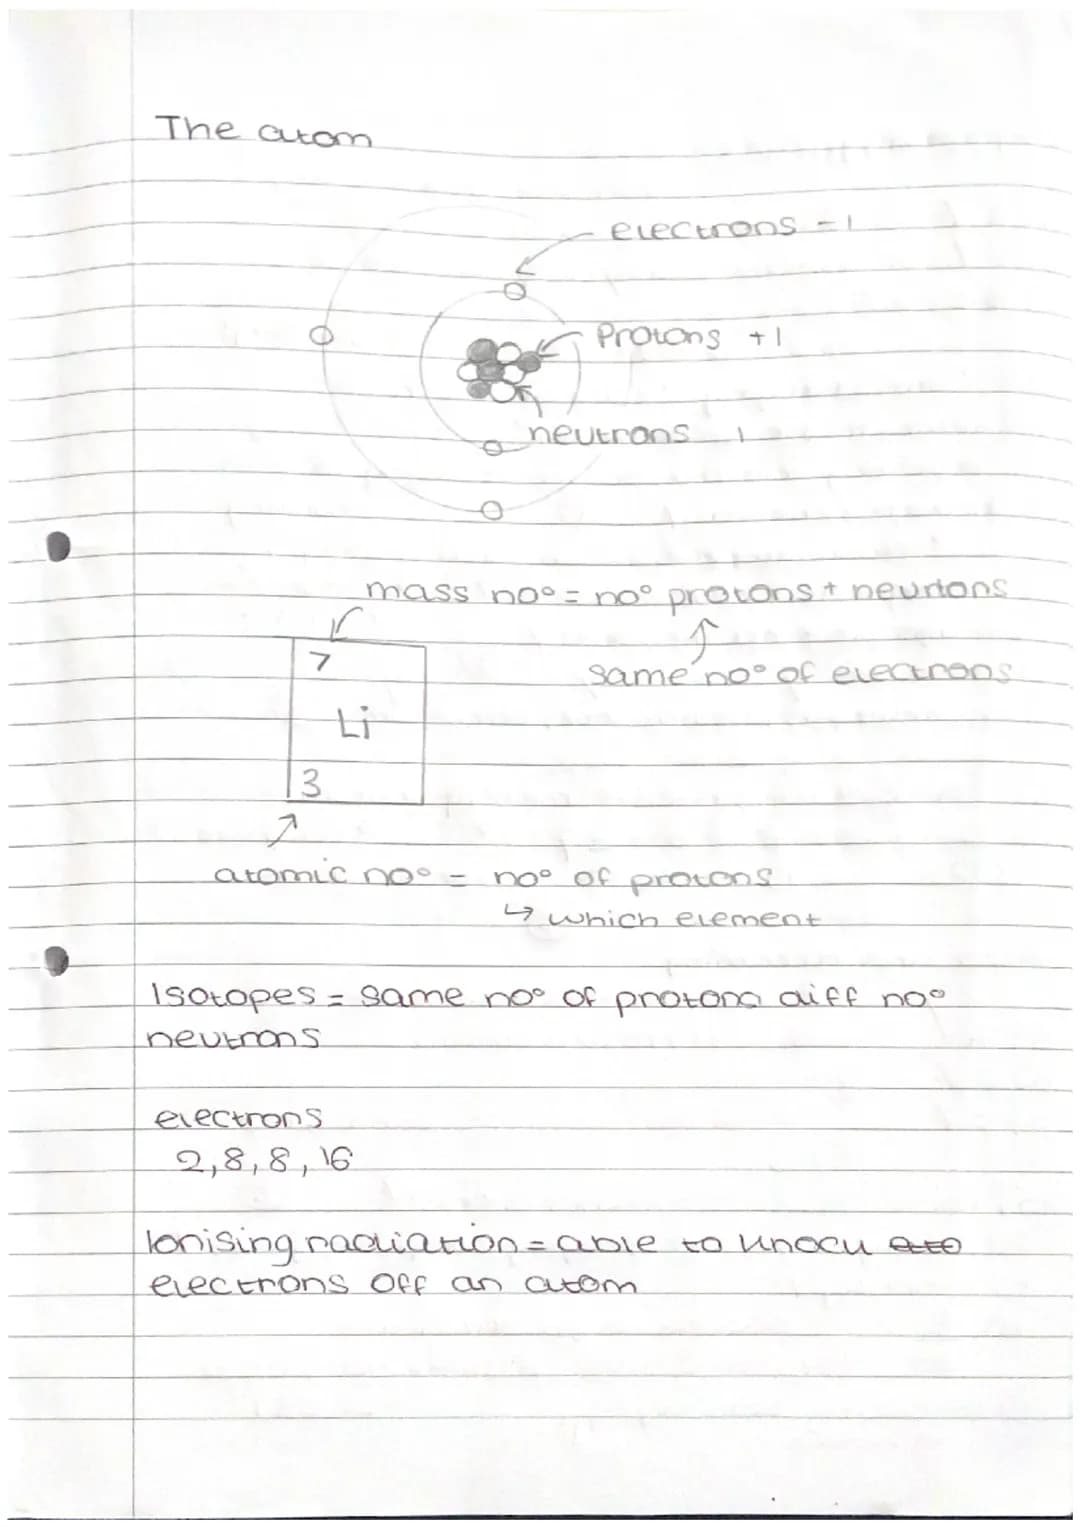 The atom
electrons -1
Protons +1
neutrons 1
mass no° = no° protons + neurtons
7
same no° of electrons
Li
3
atomic no° = no° of protons
↳ which element
Isotopes = same no° of protons diff no°
neutrons
electrons
2,8,8,16
Ionising radiation = able to
electrons off an atom